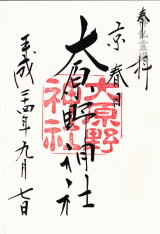 奉拝
京春日
大原野神社
大原野
神社
平成二十四年九月七日